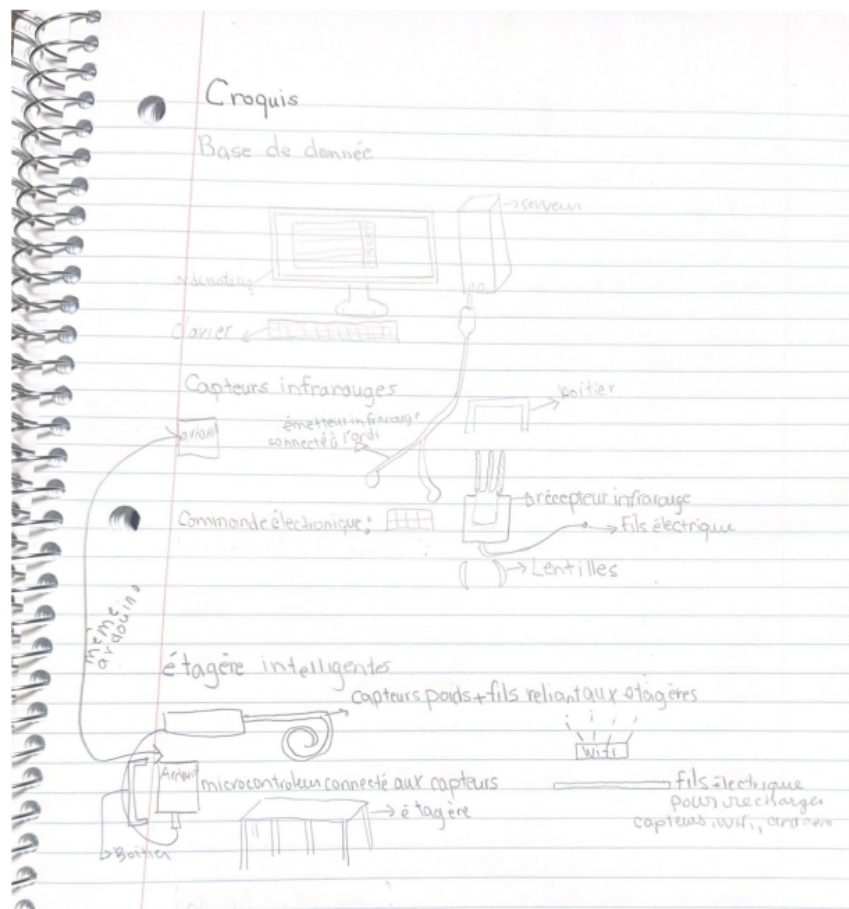 Croquis
Base de donnée
serveur
ordinateur
Clavier
Capteurs infrarouges
boitier
émetteur infrarouge
connecté à l'ordi
récepteur infrarouge
Commande électronique:
fils électrique
Lentilles
même
ardouino
étagère intelligentes
capteurs poids + fils reliant aux étagères
Wifi
microcontroleur connecté aux capteurs
fils électrique
pour recharger
capteurs, wifi, arduino
étagère
Boitier